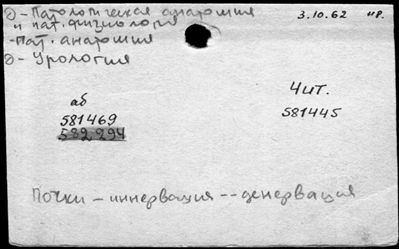 Э - Патологическая анатомия
и пат. физиология
3.10.62 нр.
-Пат. анатомия
Э - Урология
аб
581469
582294
Чит.
581445
Почки - иннервация -- денервация